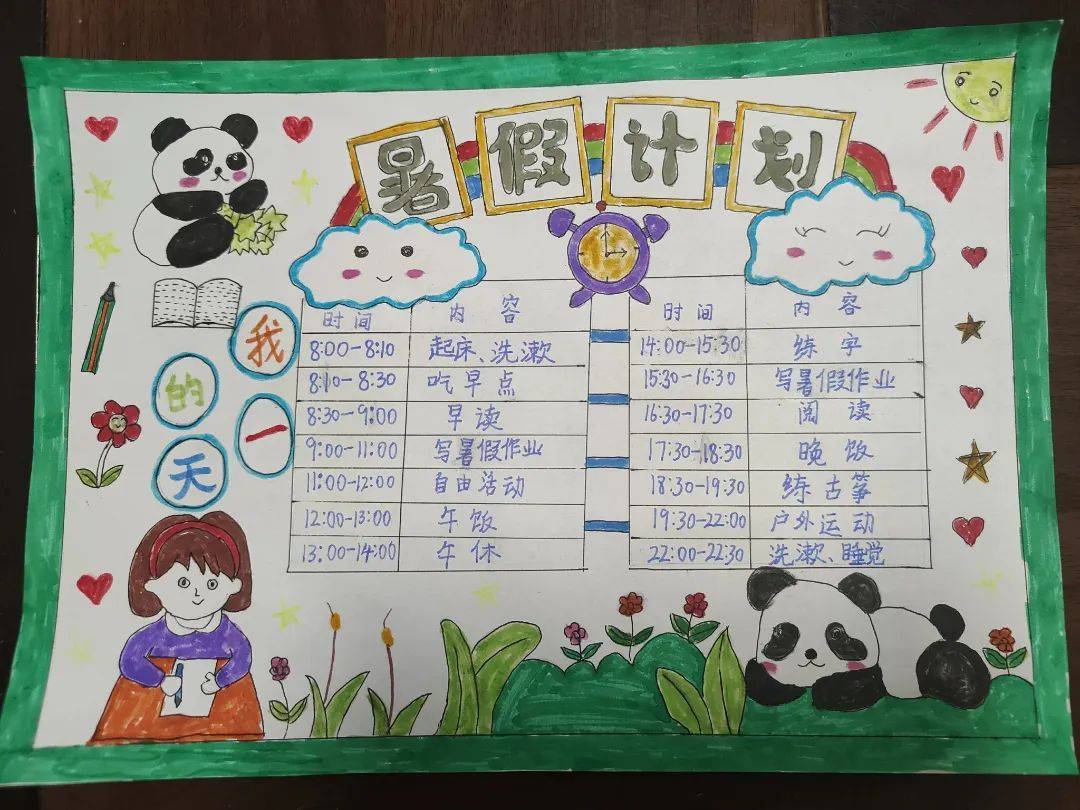 暑假计划
我的一天
时间 内容
8:00-8:10 起床、洗漱
8:10-8:30 吃早点
8:30-9:00 早读
9:00-11:00 写暑假作业
11:00-12:00 自由活动
12:00-13:00 午饭
13:00-14:00 午休
时间 内容
14:00-15:30 练字
15:30-16:30 写暑假作业
16:30-17:30 阅读
17:30-18:30 晚饭
18:30-19:30 练古筝
19:30-22:00 户外运动
22:00-22:30 洗漱、睡觉